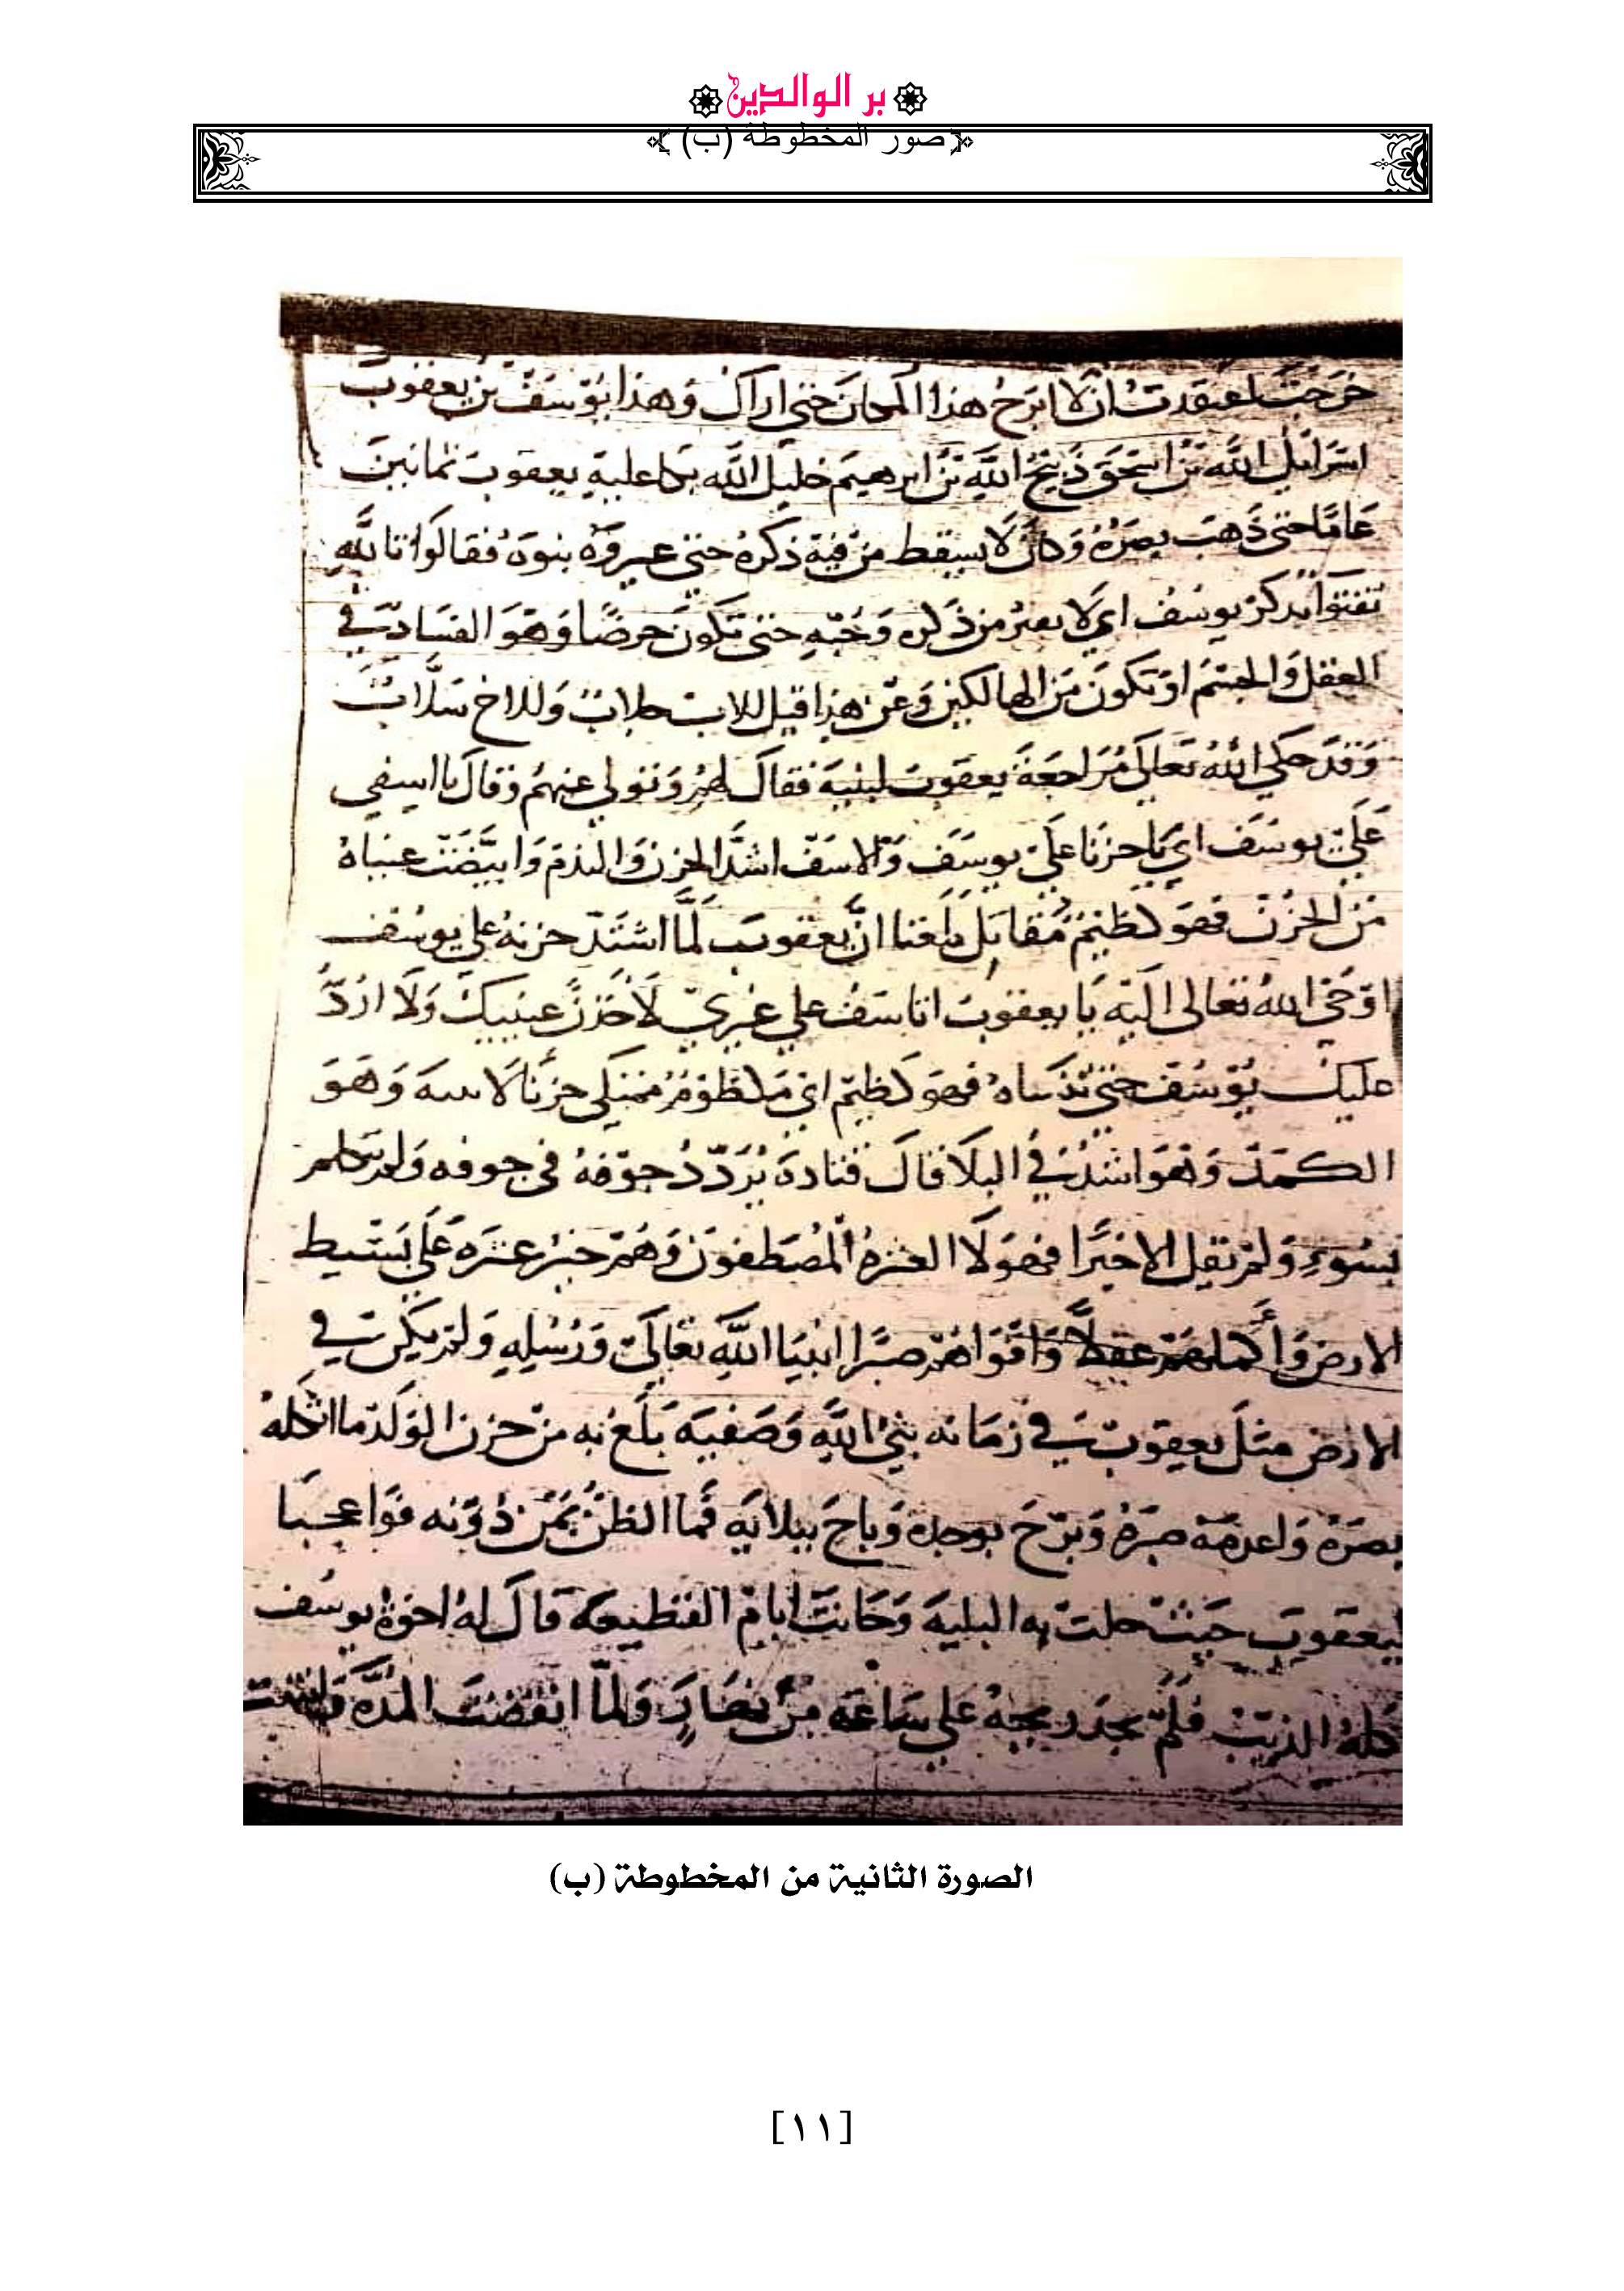 بر الوالدين
صور المخطوطة (ب)
خرجت اعتقدت ان لا ابرح هذا المكان حتى اراك وهذا يوسف بن يعقوب
اسرائيل الله بن اسحق ذبيح الله بن ابرهيم خليل الله بكا عليه يعقوب ثمانين
عاما حتى ذهب بصره وكان لا يسقط من فيه ذكره حتى عيروه بنوه فقالوا تالله
تفتوا تذكر يوسف اي لا من ذكره وحبه حتى تكون حرضا وهو الفساد في
العقل والجسم او تكون من الهالكين وعن هذا قيل للاب جلاب وللاخ سلاب
وقد حكي الله تعالى مراجعة يعقوب لبنيه فقال وتولى عنهم وقال يا اسفي
على يوسف اي يا حزنا على يوسف والاسف اشد الحزن والندم وابيضت عيناه
من الحزن فهو كظيم مقاتل بلغنا ان يعقوب لما اشتد حزنه على يوسف
اوحى الله تعالى اليه يا يعقوب اتاسف على غيري لاخذن عينيك ولا ارد
عليك يوسف حتى تنساه فهو كظيم اي مكظوم ممتلى حزنا وهو
الكمد وهو اشد في البلا قال قتادة يردد جوفه في جوفه ولم يتكلم
بسوء ولم يقل الا خيرا فهولا العشرة المصطفون وهم خير عشره على بسيط
الارض واكملهم عقلا واقواهم صبرا انبيا الله تعالى ورسله ولم يكن في
الارض مثل يعقوب في زمانه نبي الله وصفيه بلغ به من حزن الولد ما اثكله
بصره واعدمه صبره وبرح بوجده وباح ببلايه فما الظن بمن دونه فوا عجبا
ليعقوب حيث حلت به البليه وكانت ايام القطيعه قال له اخوة يوسف
اكله الذيب فلم يجد ريحه على ساعه من نهار ولما انقضت المده
الصورة الثانية من المخطوطة (ب)
[١١]